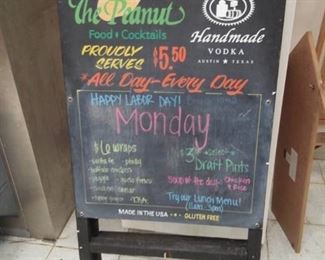 The Peanut
Food & Cocktails
PROUDLY
SERVES
$5.50
Handmade
VODKA
AUSTIN ★ TEXAS
*All Day-Every Day
HAPPY LABOR DAY!
Monday
$6 wraps
philly
buffalo chicken
veggie
$3 select
Draft Pints
Soup of the day: Chicken
& Rice
Try our Lunch Menu!
(11am-3pm)
MADE IN THE USA GLUTEN FREE